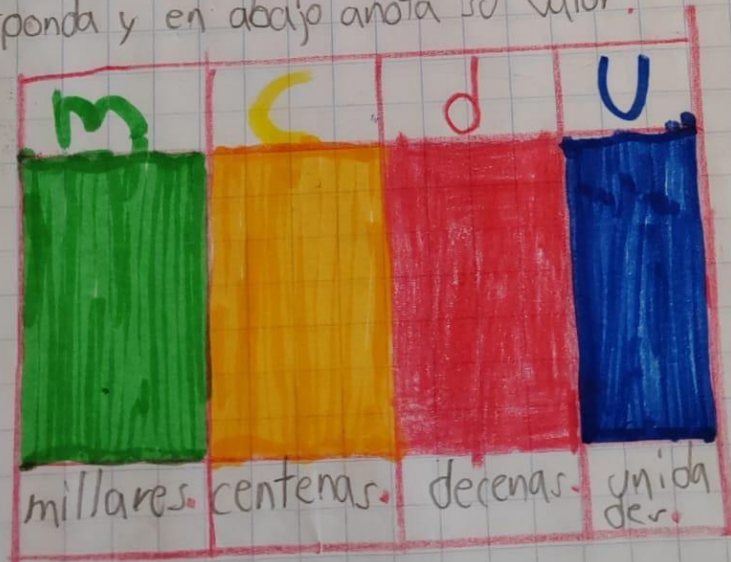 ponda y en abajo anota su valor.
m c d U
millares. centenas. decenas. unida
des.